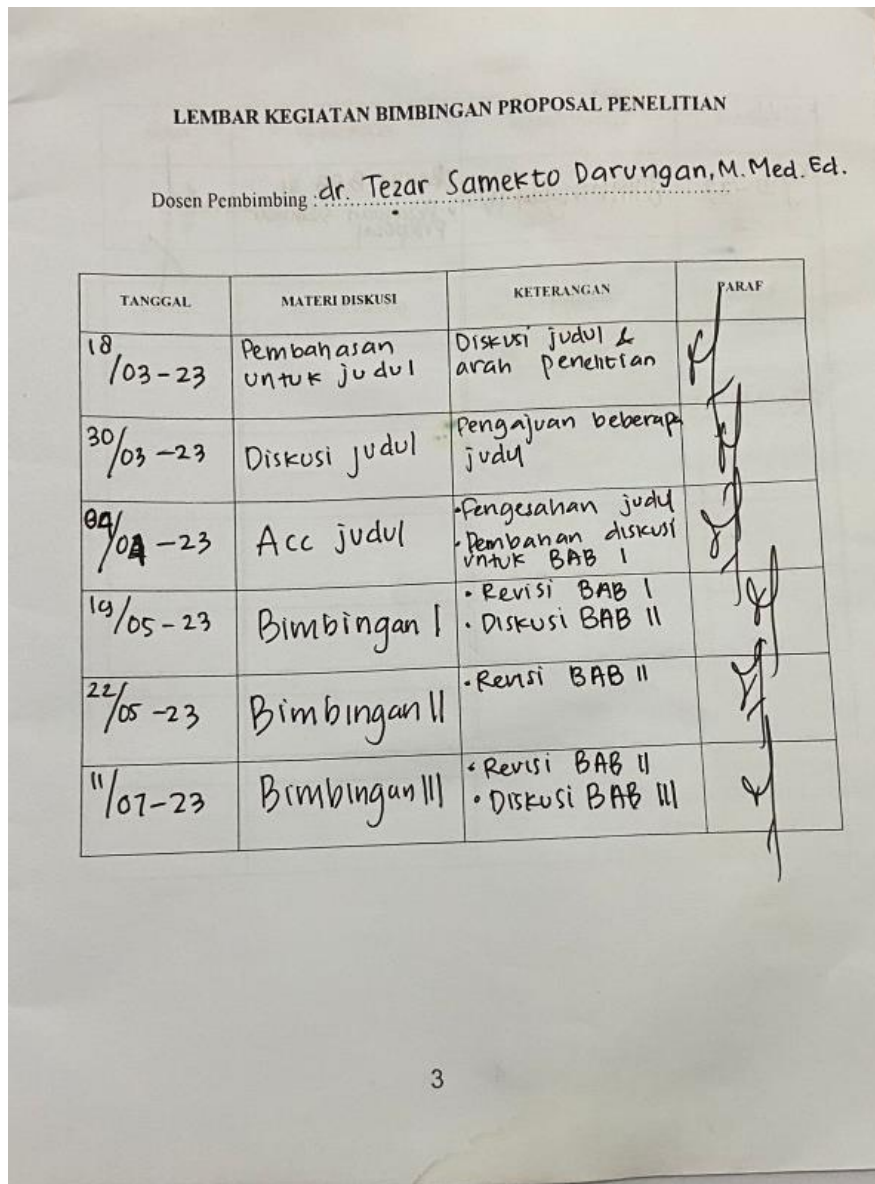 LEMBAR KEGIATAN BIMBINGAN PROPOSAL PENELITIAN
Dosen Pembimbing : dr. Tezar Samekto Darungan, M. Med. Ed.
TANGGAL MATERI DISKUSI KETERANGAN PARAF
18/03-23 Pembahasan untuk judul Diskusi judul & arah penelitian
30/03-23 Diskusi judul Pengajuan beberapa judul
/04-23 Acc judul
• Pengesahan judul
• Pembahan diskusi
untuk BAB I
19/05-23 Bimbingan I
• Revisi BAB I
• Diskusi BAB II
22/05-23 Bimbingan II • Revisi BAB II
11/07-23 Bimbingan III
• Revisi BAB II
• Diskusi BAB III
3